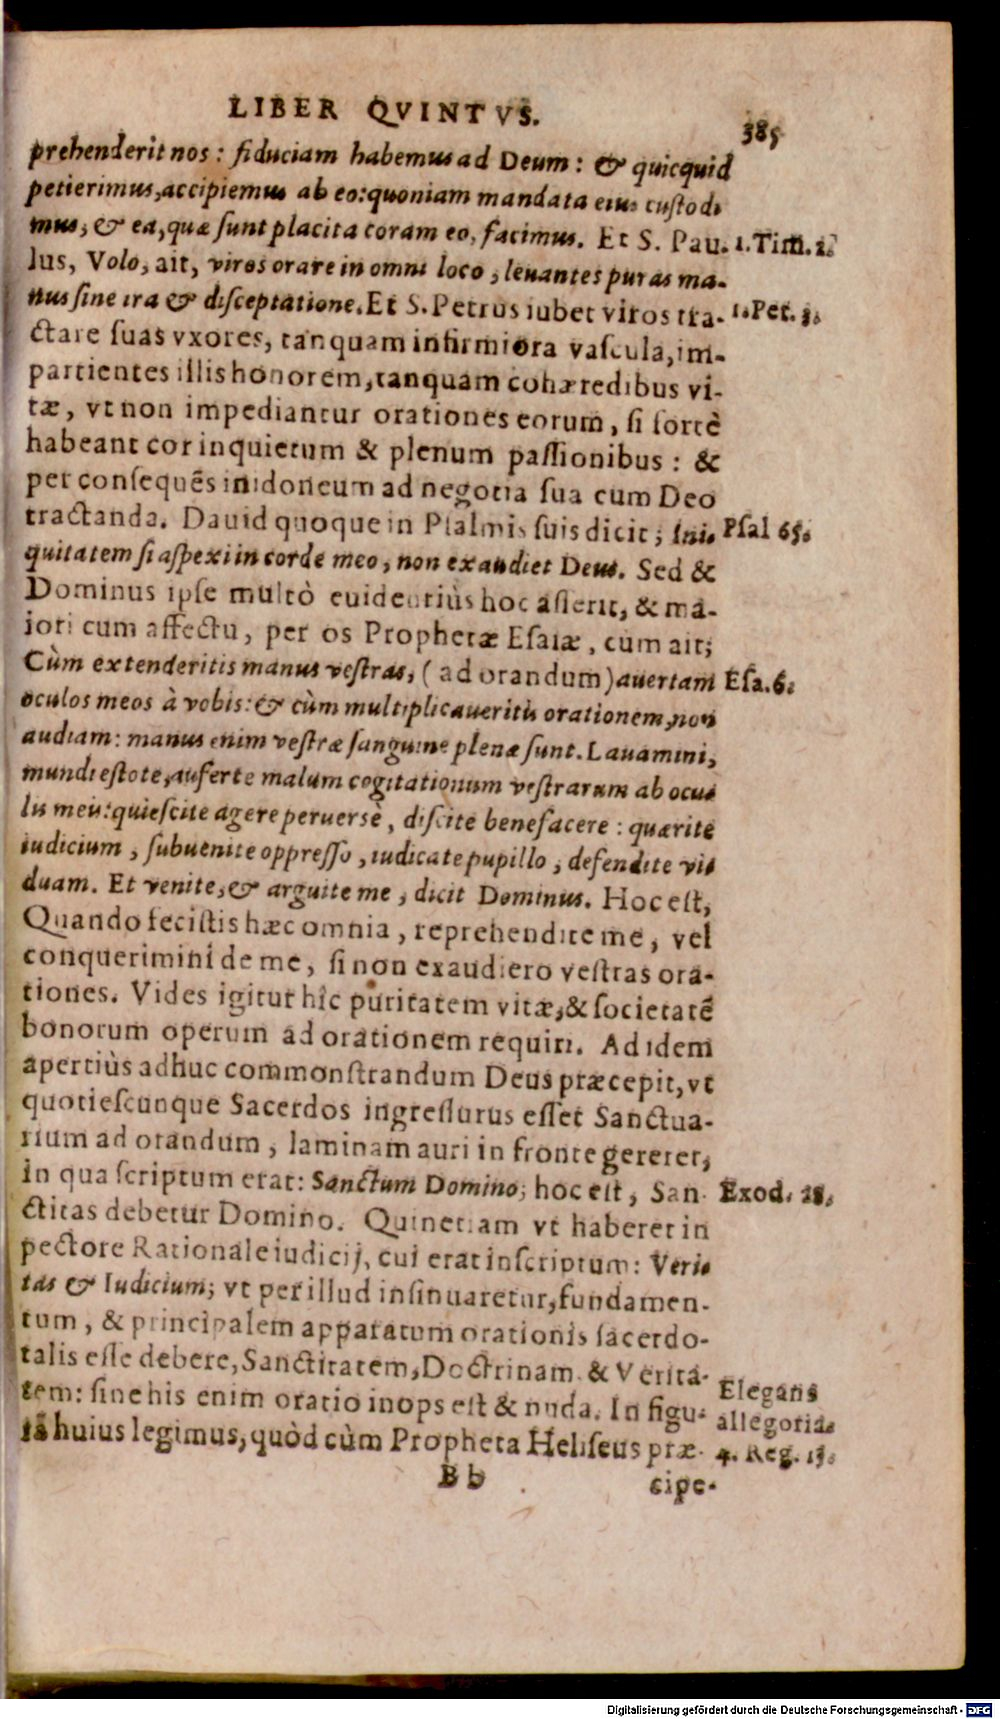 LIBER QVINTVS.
385
prehenderit nos: fiduciam habemus ad Deum: & quicquid
petierimus, accipiemus ab eo: quoniam mandata eius custodi
mus, & ea, quæ sunt placita coram eo, facimus. Et S. Pau-
1. Tim. 2.
lus, Volo, ait, viros orare in omni loco, leuantes puras ma-
nus sine ira & disceptatione. Et S. Petrus iubet viros tra-
1. Pet. 3.
ctare suas vxores, tanquam infirmiora vascula, im-
partientes illis honorem, tanquam cohæredibus vi-
tæ, vt non impediantur orationes eorum, si fortè
habeant cor inquietum & plenum passionibus: &
per consequẽs inidoneum ad negotia sua cum Deo
tractanda. Dauid quoque in Psalmis suis dicit; Ini-
Psal 65.
quitatem si aspexi in corde meo, non exaudiet Deus. Sed &
Dominus ipse multò euidentiùs hoc asserit, & ma-
iori cum affectu, per os Prophetæ Esaiæ, cum ait;
Cùm extenderitis manus vestras, (ad orandum) auertam
Esa. 6.
oculos meos à vobis: & cùm multiplicaueritis orationem, non
audiam: manus enim vestræ sanguine plenæ sunt. Lauamini,
mundi estote, auferte malum cogitationum vestrarum ab ocu-
lis meis: quiescite agere peruersè, discite benefacere: quærite
iudicium, subuenite oppresso, iudicate pupillo, defendite vi-
duam. Et venite, & arguite me, dicit Dominus. Hoc est,
Quando fecistis hæc omnia, reprehendite me, vel
conquerimini de me, si non exaudiero vestras ora-
tiones. Vides igitur hîc puritatem vitæ, & societatẽ
bonorum operum ad orationem requiri. Ad idem
apertiùs adhuc commonstrandum Deus præcepit, vt
quotiescunque Sacerdos ingressurus esset Sanctua-
rium ad orandum, laminam auri in fronte gereret,
in qua scriptum erat: Sanctum Domino; hoc est, San-
Exod. 28.
ctitas debetur Domino. Quinetiam vt haberet in
pectore Rationale iudicij, cui erat inscriptum: Veri-
tas & Iudicium; vt per illud insinuaretur, fundamen-
tum, & principalem apparatum orationis sacerdo-
talis esse debere, Sanctitatem, Doctrinam & Verita-
tem: sine his enim oratio inops est & nuda. In figu-
Elegans
allegoria.
rã huius legimus, quòd cùm Propheta Heliseus præ-
4. Reg. 13.
Bb
cipe-
Digitalisierung gefördert durch die Deutsche Forschungsgemeinschaft - DFG